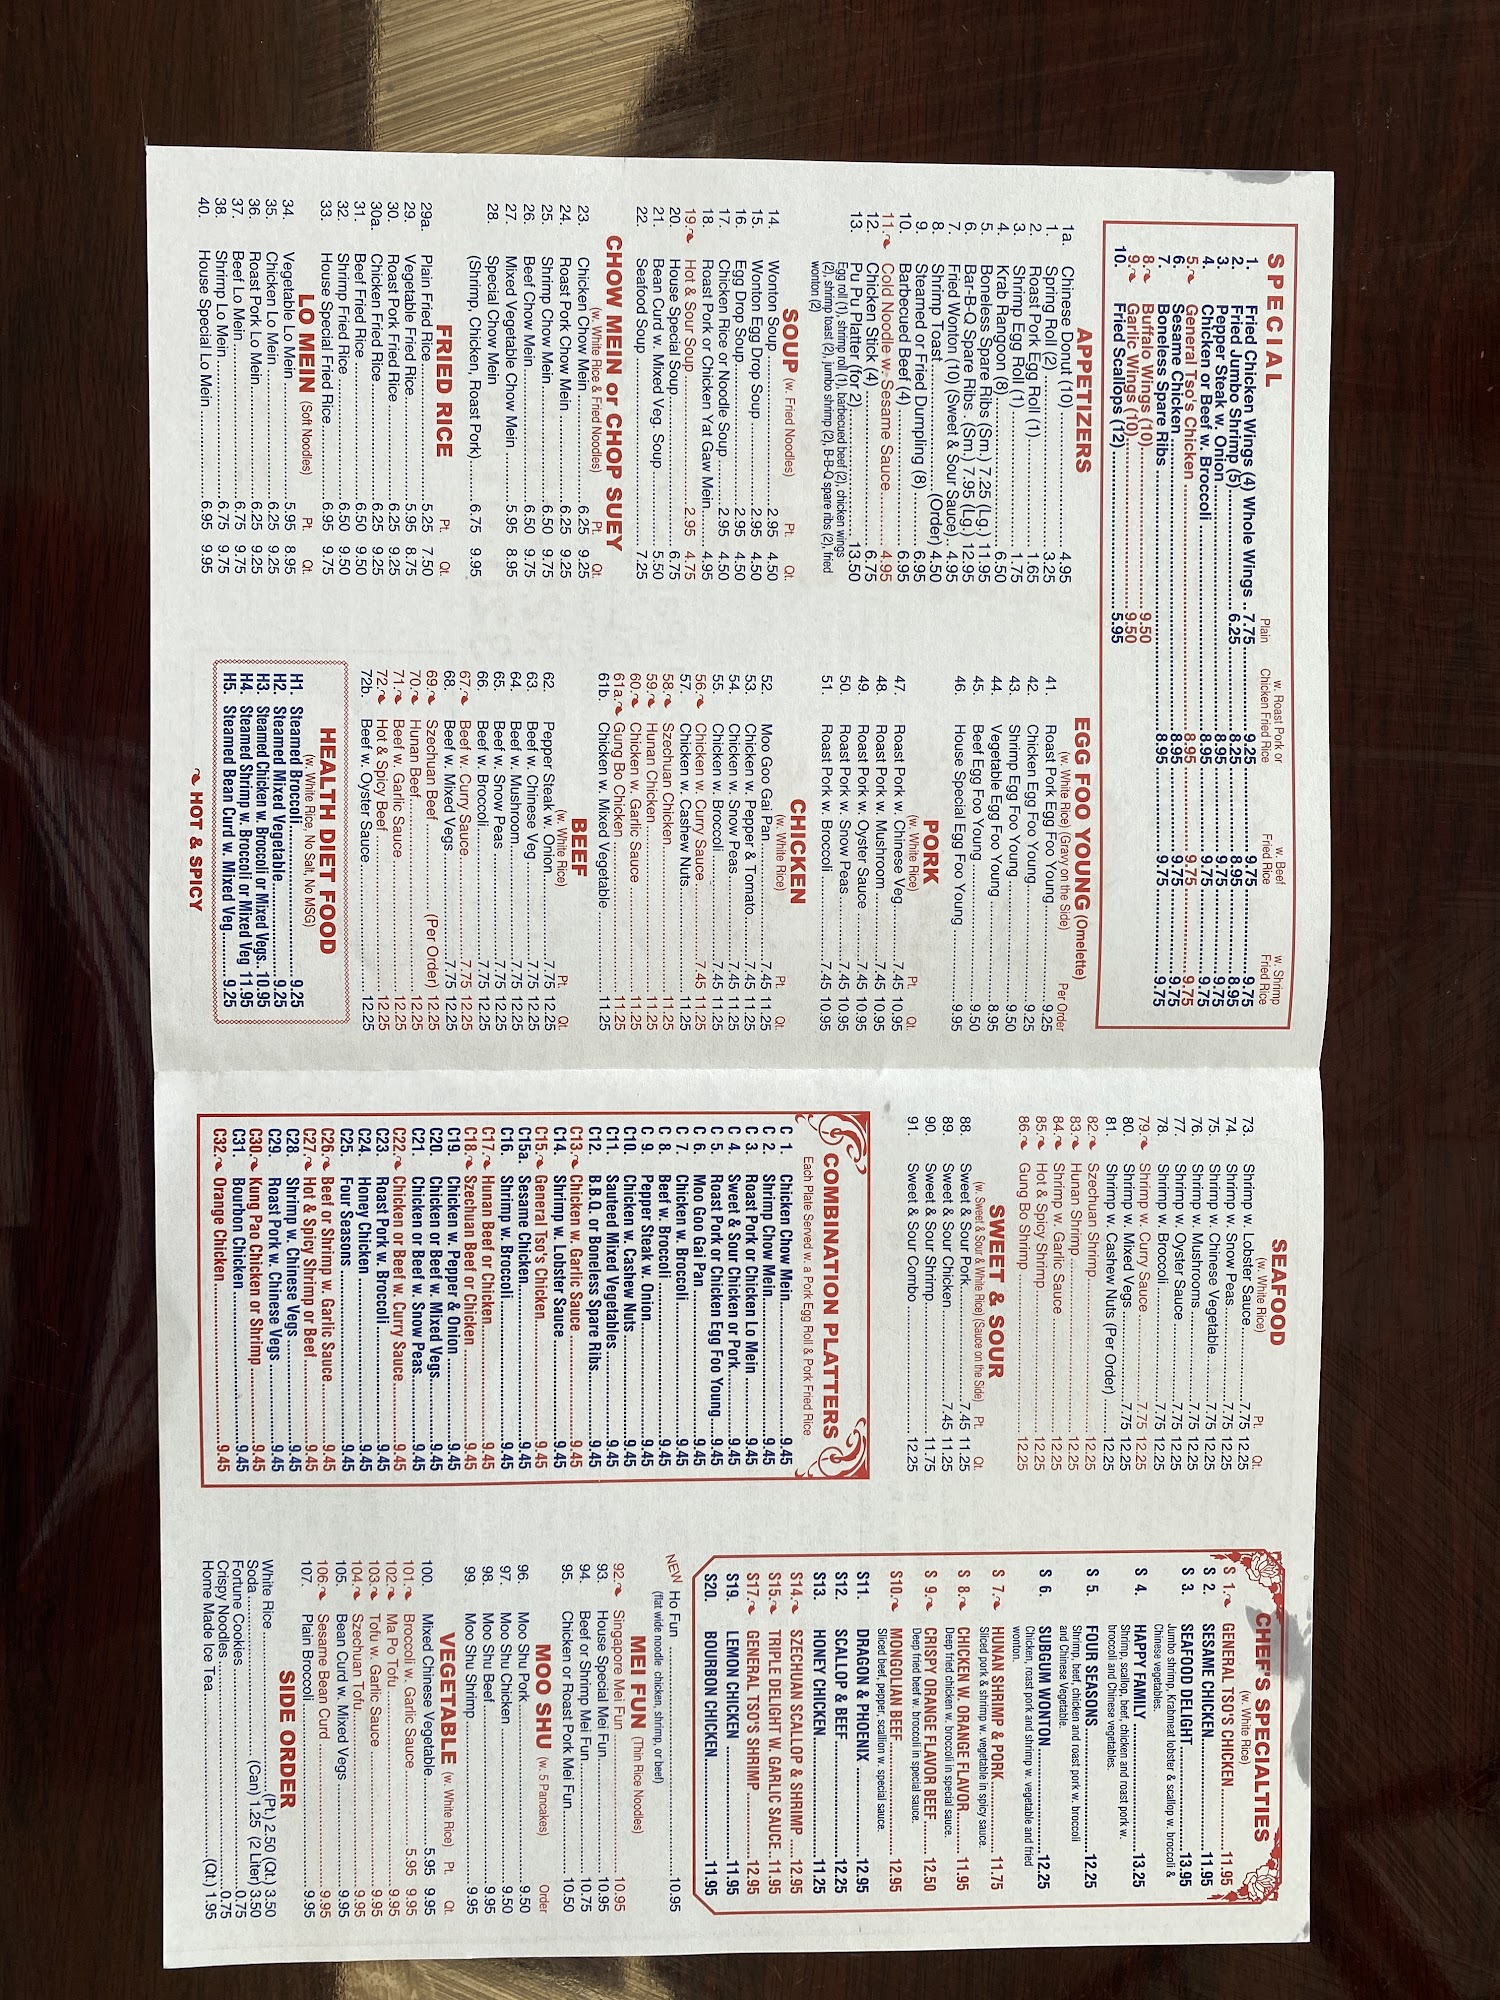 SPECIAL
Plain
w. Roast Pork or
Chicken Fried Rice
w. Beef
Fried Rice
w. Shrimp
Fried Rice
1. Fried Chicken Wings (4) Whole Wings .. 7.75 9.25 9.75 9.75
2. Fried Jumbo Shrimp (5) 6.25 8.25 8.95 8.95
3. Pepper Steak w. Onion 8.95 9.75 9.75
4. Chicken or Beef w. Broccoli 8.95 9.75 9.75
5. General Tso's Chicken 8.95 9.75 9.75
6. Sesame Chicken 8.95 9.75 9.75
7. Boneless Spare Ribs 8.95 9.75 9.75
8. Buffalo Wings (10) 9.50
9. Garlic Wings (10) 9.50
10. Fried Scallops (12) 5.95
APPETIZERS
1a. Chinese Donut (10) 4.95
1. Spring Roll (2) 3.25
2. Roast Pork Egg Roll (1) 1.65
3. Shrimp Egg Roll (1) 1.75
4. Krab Rangoon (8) 6.50
5. Boneless Spare Ribs (Sm.) 7.25 (Lg.) 11.95
6. Bar-B-Q Spare Ribs (Sm.) 7.95 (Lg.) 12.95
7. Fried Wonton (10) (Sweet & Sour Sauce) .. 4.95
8. Shrimp Toast (Order) 4.50
9. Steamed or Fried Dumpling (8) 6.95
10. Barbecued Beef (4) 6.95
11. Cold Noodle w. Sesame Sauce 4.95
12. Chicken Stick (4) 6.75
13. Pu Pu Platter (for 2) 13.50
Egg roll (1), shrimp roll (1), barbecued beef (2), chicken wings
(2), shrimp toast (2), jumbo shrimp (2), B-B-Q spare ribs (2), fried
wonton (2)
SOUP (w. Fried Noodles) Pt. Qt.
14. Wonton Soup 2.95 4.50
15. Wonton Egg Drop Soup 2.95 4.50
16. Egg Drop Soup 2.95 4.50
17. Chicken Rice or Noodle Soup 2.95 4.50
18. Roast Pork or Chicken Yat Gaw Mein 4.95
19. Hot & Sour Soup 2.95 4.75
20. House Special Soup 6.75
21. Bean Curd w. Mixed Veg. Soup 5.50
22. Seafood Soup 7.25
CHOW MEIN or CHOP SUEY
(w. White Rice & Fried Noodles) Pt. Qt.
23. Chicken Chow Mein 6.25 9.25
24. Roast Pork Chow Mein 6.25 9.25
25. Shrimp Chow Mein 6.50 9.75
26. Beef Chow Mein 6.50 9.50
27. Mixed Vegetable Chow Mein 5.95 8.95
28. Special Chow Mein
(Shrimp, Chicken, Roast Pork) 6.75 9.95
FRIED RICE Pt. Qt.
29a. Plain Fried Rice 5.25 7.50
29. Vegetable Fried Rice 5.95 8.75
30. Roast Pork Fried Rice 6.25 9.25
30a. Chicken Fried Rice 6.25 9.25
31. Beef Fried Rice 6.50 9.50
32. Shrimp Fried Rice 6.50 9.50
33. House Special Fried Rice 6.95 9.75
LO MEIN (Soft Noodles) Pt. Qt.
34. Vegetable Lo Mein 5.95 8.95
35. Chicken Lo Mein 6.25 9.25
36. Roast Pork Lo Mein 6.25 9.25
37. Beef Lo Mein 6.75 9.75
38. Shrimp Lo Mein 6.75 9.75
40. House Special Lo Mein 6.95 9.95
EGG FOO YOUNG (Omelette)
(w. White Rice) (Gravy on the Side) Per Order
41. Roast Pork Egg Foo Young 9.25
42. Chicken Egg Foo Young 9.25
43. Shrimp Egg Foo Young 9.50
44. Vegetable Egg Foo Young 8.95
45. Beef Egg Foo Young 9.50
46. House Special Egg Foo Young 9.95
PORK
(w. White Rice) Pt. Qt.
47. Roast Pork w. Chinese Veg 7.45 10.95
48. Roast Pork w. Mushroom 7.45 10.95
49. Roast Pork w. Oyster Sauce 7.45 10.95
50. Roast Pork w. Snow Peas 7.45 10.95
51. Roast Pork w. Broccoli 7.45 10.95
CHICKEN
(w. White Rice) Pt. Qt.
52. Moo Goo Gai Pan 7.45 11.25
53. Chicken w. Pepper & Tomato 7.45 11.25
54. Chicken w. Snow Peas 7.45 11.25
55. Chicken w. Broccoli 7.45 11.25
56. Chicken w. Curry Sauce 7.45 11.25
57. Chicken w. Cashew Nuts 11.25
58. Szechuan Chicken 11.25
59. Hunan Chicken 11.25
60. Chicken w. Garlic Sauce 11.25
61a. Gung Bo Chicken 11.25
61b. Chicken w. Mixed Vegetable 11.25
BEEF
(w. White Rice) Pt. Qt.
62. Pepper Steak w. Onion 7.75 12.25
63. Beef w. Chinese Veg 7.75 12.25
64. Beef w. Mushroom 7.75 12.25
65. Beef w. Snow Peas 7.75 12.25
66. Beef w. Broccoli 7.75 12.25
67. Beef w. Curry Sauce 7.75 12.25
68. Beef w. Mixed Vegs 7.75 12.25
69. Szechuan Beef (Per Order) 12.25
70. Hunan Beef 12.25
71. Beef w. Garlic Sauce 12.25
72. Hot & Spicy Beef 12.25
72b. Beef w. Oyster Sauce 12.25
HEALTH DIET FOOD
(w. White Rice, No Salt, No MSG)
H1. Steamed Broccoli 9.25
H2. Steamed Mixed Vegetable 9.25
H3. Steamed Chicken w. Broccoli or Mixed Vegs .. 10.95
H4. Steamed Shrimp w. Broccoli or Mixed Veg 11.95
H5. Steamed Bean Curd w. Mixed Veg 9.25
HOT & SPICY
SEAFOOD
(w. White Rice) Pt. Qt.
73. Shrimp w. Lobster Sauce 7.75 12.25
74. Shrimp w. Snow Peas 7.75 12.25
75. Shrimp w. Chinese Vegetable 7.75 12.25
76. Shrimp w. Mushrooms 7.75 12.25
77. Shrimp w. Oyster Sauce 7.75 12.25
78. Shrimp w. Broccoli 7.75 12.25
79. Shrimp w. Curry Sauce 7.75 12.25
80. Shrimp w. Mixed Vegs 7.75 12.25
81. Shrimp w. Cashew Nuts (Per Order) 12.25
82. Szechuan Shrimp 12.25
83. Hunan Shrimp 12.25
84. Shrimp w. Garlic Sauce 12.25
85. Hot & Spicy Shrimp 12.25
86. Gung Bo Shrimp 12.25
SWEET & SOUR
(w. Sweet & Sour & White Rice) (Sauce on the Side) Pt. Qt.
88. Sweet & Sour Pork 7.45 11.25
89. Sweet & Sour Chicken 7.45 11.25
90. Sweet & Sour Shrimp 11.75
91. Sweet & Sour Combo 12.25
COMBINATION PLATTERS
Each Plate Served w. a Pork Egg Roll & Pork Fried Rice
C 1. Chicken Chow Mein 9.45
C 2. Shrimp Chow Mein 9.45
C 3. Roast Pork or Chicken Lo Mein 9.45
C 4. Sweet & Sour Chicken or Pork 9.45
C 5. Roast Pork or Chicken Egg Foo Young 9.45
C 6. Moo Goo Gai Pan 9.45
C 7. Chicken w. Broccoli 9.45
C 8. Beef w. Broccoli 9.45
C 9. Pepper Steak w. Onion 9.45
C10. Chicken w. Cashew Nuts 9.45
C11. Sauteed Mixed Vegetables 9.45
C12. B.B.Q. or Boneless Spare Ribs 9.45
C13. Chicken w. Garlic Sauce 9.45
C14. Shrimp w. Lobster Sauce 9.45
C15. General Tso's Chicken 9.45
C15a. Sesame Chicken 9.45
C16. Shrimp w. Broccoli 9.45
C17. Hunan Beef or Chicken 9.45
C18. Szechuan Beef or Chicken 9.45
C19. Chicken w. Pepper & Onion 9.45
C20. Chicken or Beef w. Mixed Vegs 9.45
C21. Chicken or Beef w. Snow Peas 9.45
C22. Chicken or Beef w. Curry Sauce 9.45
C23. Roast Pork w. Broccoli 9.45
C24. Honey Chicken 9.45
C25. Four Seasons 9.45
C26. Beef or Shrimp w. Garlic Sauce 9.45
C27. Hot & Spicy Shrimp or Beef 9.45
C28. Shrimp w. Chinese Vegs 9.45
C29. Roast Pork w. Chinese Vegs 9.45
C30. Kung Pao Chicken or Shrimp 9.45
C31. Bourbon Chicken 9.45
C32. Orange Chicken 9.45
CHEF'S SPECIALTIES
(w. White Rice)
S 1. GENERAL TSO'S CHICKEN 11.95
S 2. SESAME CHICKEN 11.95
S 3. SEAFOOD DELIGHT 13.95
Jumbo shrimp, Krabmeat lobster & scallop w. broccoli &
Chinese vegetables.
S 4. HAPPY FAMILY 13.25
Shrimp, scallop, beef, chicken and roast pork w.
broccoli and Chinese vegetables.
S 5. FOUR SEASONS 12.25
Shrimp, beef, chicken and roast pork w. broccoli
and Chinese Vegetable.
S 6. SUBGUM WONTON 12.25
Chicken, roast pork and shrimp w. vegetable and fried
wonton.
S 7. HUNAN SHRIMP & PORK 11.75
Sliced pork & shrimp w. vegetable in spicy sauce.
S 8. CHICKEN W. ORANGE FLAVOR 11.95
Deep fried chicken w. broccoli in special sauce.
S 9. CRISPY ORANGE FLAVOR BEEF 12.50
Deep fried beef w. broccoli in special sauce.
S10. MONGOLIAN BEEF 12.95
Sliced beef, pepper, scallion w. special sauce.
S11. DRAGON & PHOENIX 12.95
S12. SCALLOP & BEEF 12.25
S13. HONEY CHICKEN 11.25
S14. SZECHUAN SCALLOP & SHRIMP 12.95
S15. TRIPLE DELIGHT W. GARLIC SAUCE .. 11.95
S17. GENERAL TSO'S SHRIMP 12.95
S19. LEMON CHICKEN 11.95
S20. BOURBON CHICKEN 11.95
NEW Ho Fun 10.95
(flat wide noodle chicken, shrimp, or beef)
MEI FUN (Thin Rice Noodles)
92. Singapore Mei Fun 10.95
93. House Special Mei Fun 10.95
94. Beef or Shrimp Mei Fun 10.75
95. Chicken or Roast Pork Mei Fun 10.50
MOO SHU (w. 5 Pancakes) Order
96. Moo Shu Pork 9.50
97. Moo Shu Chicken 9.50
98. Moo Shu Beef 9.95
99. Moo Shu Shrimp 9.95
VEGETABLE (w. White Rice) Pt. Qt.
100. Mixed Chinese Vegetable 5.95 9.95
101. Broccoli w. Garlic Sauce 5.95 9.95
102. Ma Po Tofu 9.95
103. Tofu w. Garlic Sauce 9.95
104. Szechuan Tofu 9.95
105. Bean Curd w. Mixed Vegs 9.95
106. Sesame Bean Curd 9.95
107. Plain Broccoli 9.95
SIDE ORDER
White Rice (Pt.) 2.50 (Qt.) 3.50
Soda (Can) 1.25 (2 Liter) 3.50
Fortune Cookies 0.75
Crispy Noodles 0.75
Home Made Ice Tea (Qt.) 1.95